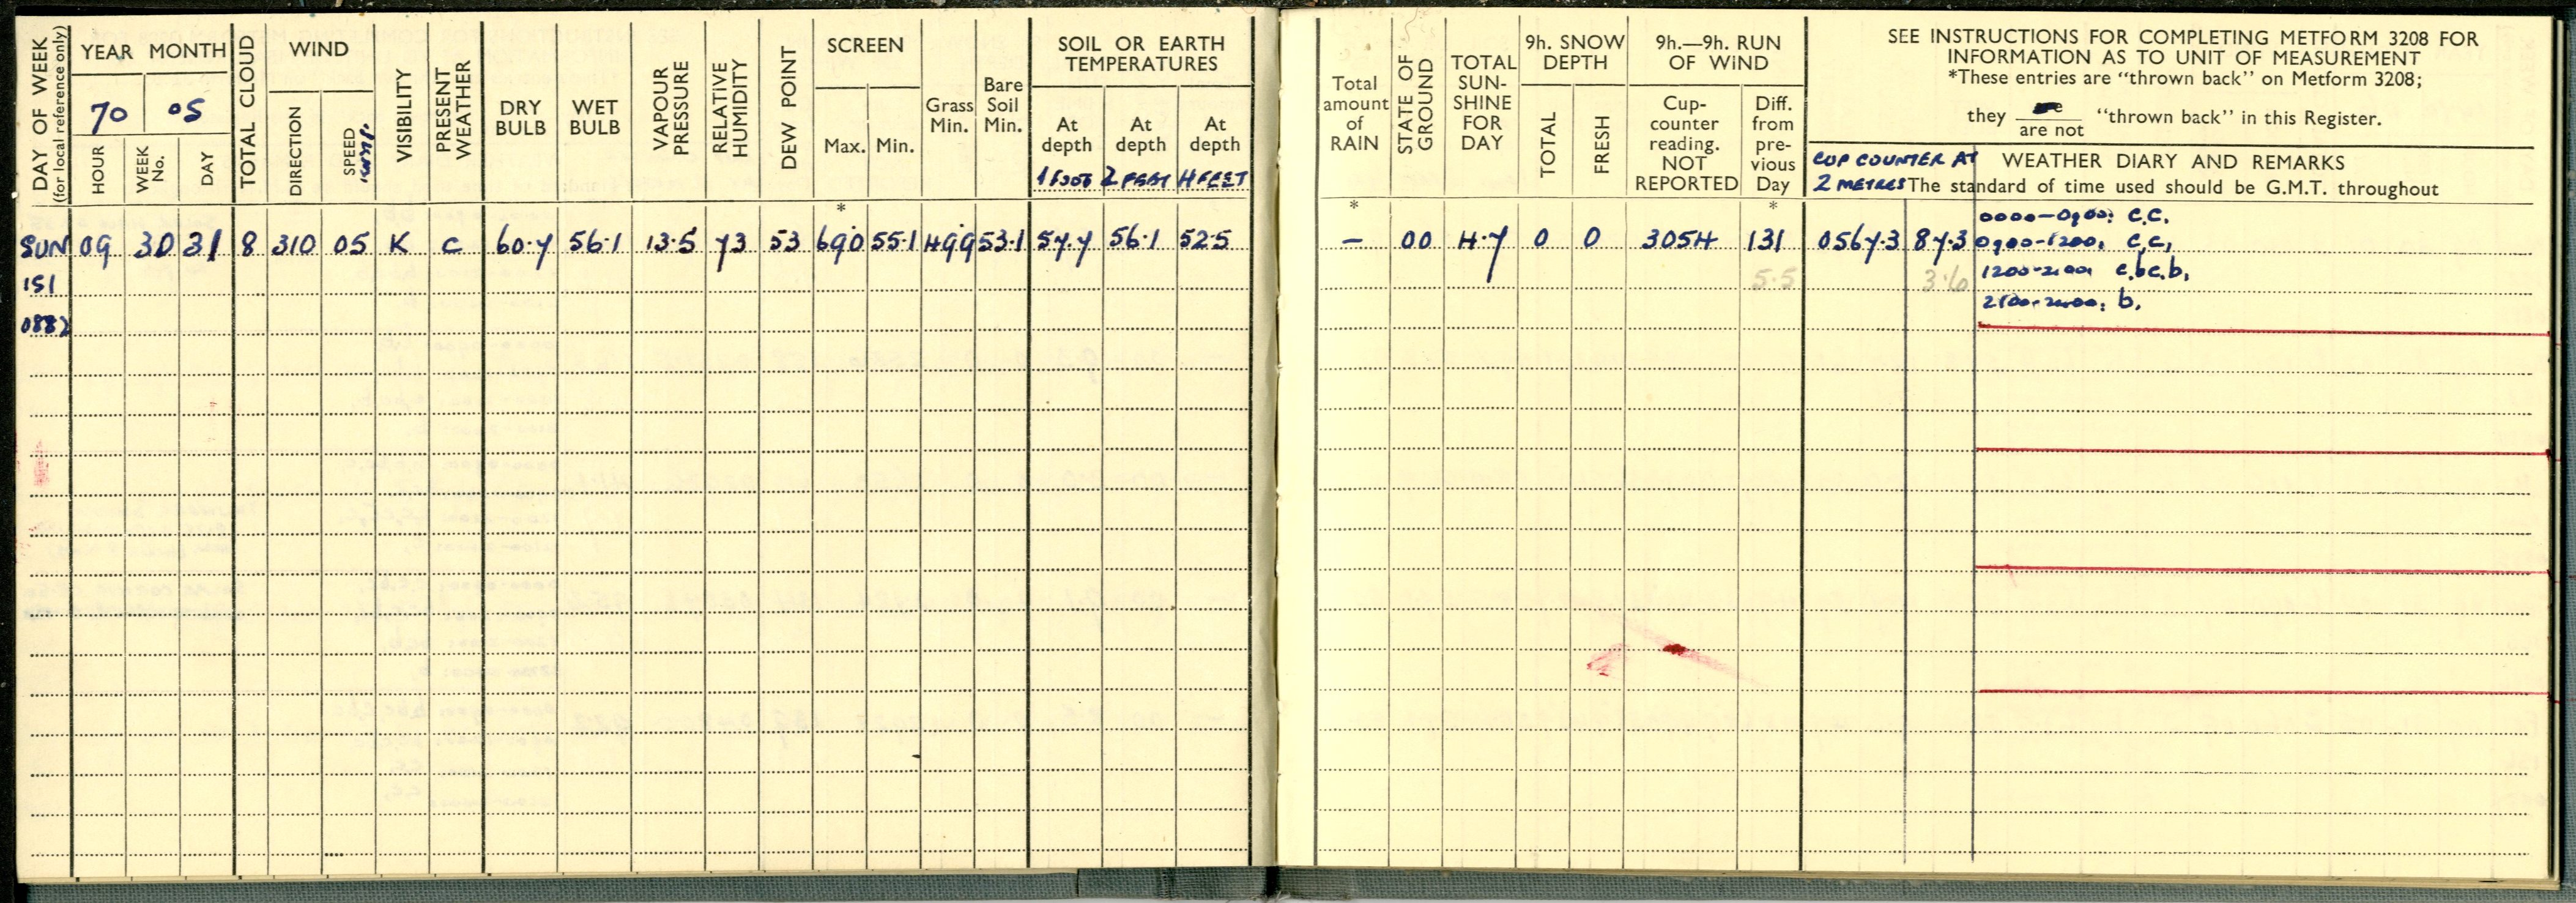 DAY OF WEEK
(for local reference only)
YEAR MONTH
70 05
HOUR
WEEK No.
DAY
TOTAL CLOUD
WIND
DIRECTION
SPEED
VISIBILITY
PRESENT WEATHER
DRY BULB
WET BULB
VAPOUR PRESSURE
RELATIVE HUMIDITY
DEW POINT
SCREEN
Max. Min.
Grass Min.
Bare Soil Min.
SOIL OR EARTH
TEMPERATURES
At depth 1 FOOT
At depth 2 FEET
At depth 4 FEET
*
SUN 09 30 31 8 310 05 K C 60.7 56.1 13.5 73 53 69.0 55.1 49.9 53.1 57.7 56.1 52.5
151
0882
Total amount of RAIN
STATE OF GROUND
TOTAL SUN-SHINE FOR DAY
9h. SNOW DEPTH
TOTAL
FRESH
9h.—9h. RUN OF WIND
Cup-counter reading. NOT REPORTED
Diff. from pre-vious Day
SEE INSTRUCTIONS FOR COMPLETING METFORM 3208 FOR
INFORMATION AS TO UNIT OF MEASUREMENT
*These entries are "thrown back" on Metform 3208;
they are
are not "thrown back" in this Register.
CUP COUNTER AT WEATHER DIARY AND REMARKS
2 METRES The standard of time used should be G.M.T. throughout
* *
0000-0900: c.c.
— 00 4.7 0 0 3054 131 0567.3 87.3 0900-1200, c,c,
5.5 3.6 1200-2100 c,bc.b,
2100-2400: b.